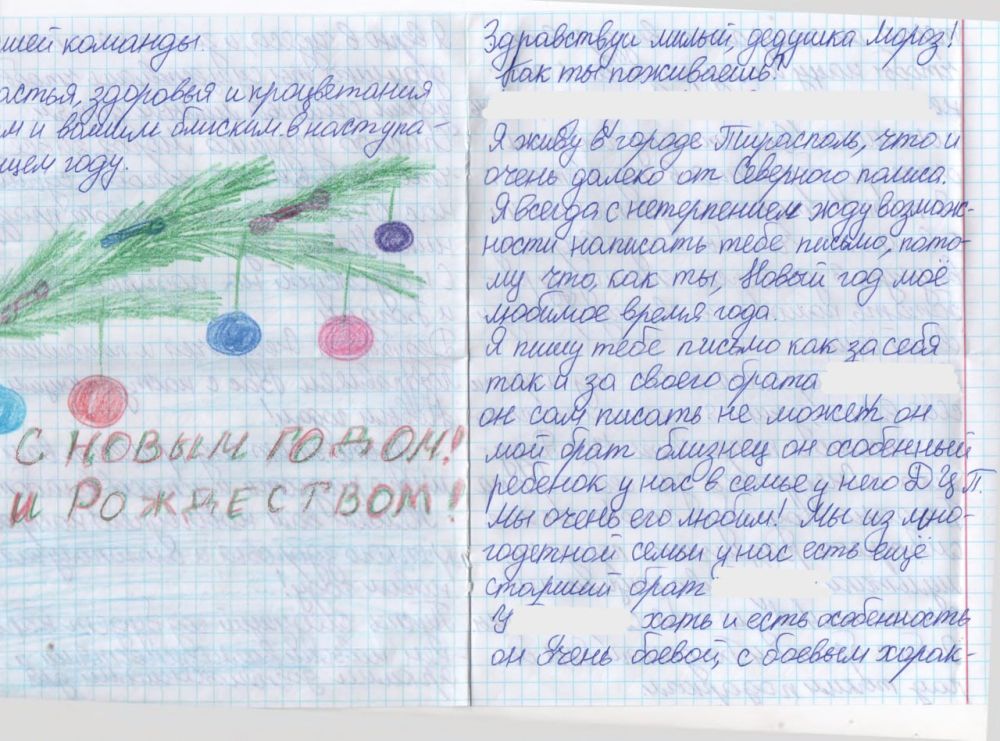 шей команды.
астья, здоровья и процветания
м и вашим блиским в наступа-
щем году.
С НОВЫМ ГОДОМ!
И РОЖДЕСТВОМ!
Здравствуй милый, дедушка Мороз!
Как ты поживаешь?
Я живу в городе Тирасполь, что и
очень далеко от Северного полиса.
Я всегда с нетерпением жду возмож-
ности написать тебе письмо, пото-
му что, как ты, Новый год, моё
любимое время года.
Я пишу тебе письмо как за себя
так и за своего брата
он сам писать не может он
мой брат близнец он особенный
ребенок у нас в семье у него ДЦП.
Мы очень его любим! Мы из мно-
годетной семьи у нас есть ещё
старший брат
У хоть и есть особенность
он очень боевой, с боевым харак-